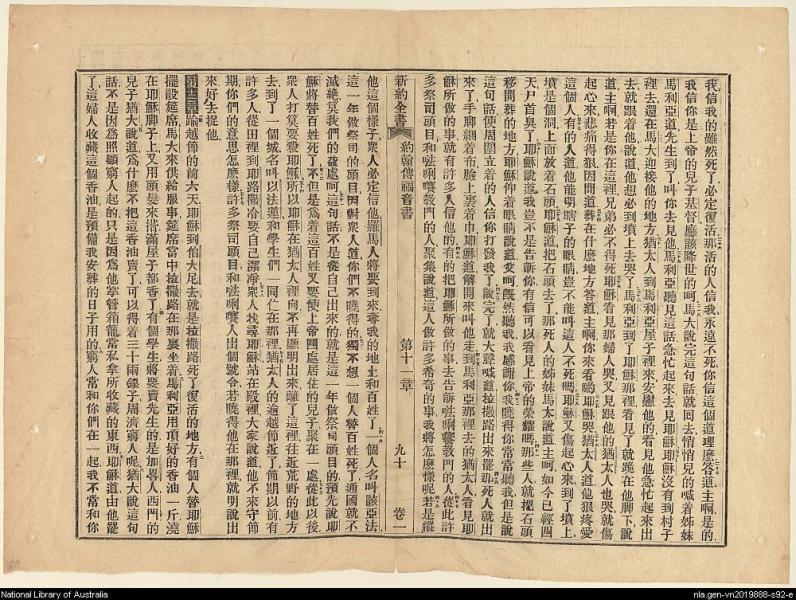 我信我的雖然死了必定復活那活的人信我永遠不死你信這個道理麽答道主啊是的
我信你是上帝的兒子基督應該降世的呵馬大說完這句話就回去悄悄兒的喊着姊妹
馬利亞道先生到了叫你去見他馬利亞聽見這話急忙起來去見耶穌耶穌沒有到村子
裡去還在馬大迎接他的地方猶太人到馬利亞屋子裡來安慰他的看見他急忙起來出
去就跟着他說道他想必到墳上去哭了馬利亞到了耶穌那裡看見了就跪在他脚下說
道主啊若是你在這裡兄弟必不得死耶穌看見那婦人哭又見跟他的猶太人也哭就傷
起心來悲痛得狠因問道葬在什麽地方答道主啊你來看喲耶穌哭猶太人道他狠疼愛
這個人有的人道他能明瞎子的眼睛豈不能叫這人不死嗎耶穌又傷起心來到了墳上
墳是個洞上面放着石頭耶穌道把石頭去了那死人的姊妹馬大說道主呵如今已經四
天尸首臭了耶穌說道我豈不是告訴你有信可以看見上帝的榮耀嗎那些人就擡石頭
移開葬的地方耶穌仰着眼睛說道父呵旣然聽我我感謝你我曉得你常常聽我但是說
這句話使周圍立着的人信你打發我了說完了就大聲喊道拉撒路出來罷那死人就出
來了手脚綑着布臉上裹着巾耶穌道解開來叫他走到馬利亞那裡去的猶太人看見耶
穌所做的事就有許多人信他的有的把耶穌所做的事去告訴𠵽唎㘔教門的人從此許
多祭司頭目和𠵽唎㘔教門的人聚集說道這人做許多希奇的事我將怎麽樣呢若是縱
新約全書
約翰傳福音書
第十一章
九十
卷一
他這個樣子衆人必定信他羅馬人將要到來奪我的地土和百姓了一個人名叫該亞法
這一年做祭司的頭目因對衆人道你們不曉得的獨不想一個人替百姓死了通國就不
滅絕算我們的益處呵這句話不是從自己出來的就是這一年做祭司頭目的預先說耶
穌將替百姓死了不但是爲着這百姓又要使上帝國處居住的兒子聚在一處從此以後
衆人打算要殺耶穌所以耶穌在猶太人裡向不再顯明出來離了這裡往近荒野的地方
去到了一個城名叫以法蓮和學生們一同仁在那裡猶太人的逾越節近了節期以前有
許多人從田裡到耶路撒冷要自己潔凈衆人找尋耶穌站在殿裡大家說道他不來守節
期你們的意思怎麽樣許多祭司頭目和𠵽唎㘔人出個號令若曉得他在那裡就明說出
來好去捉他
第十二章逾越節的前六天耶穌到伯大尼去就是拉撒路死了復活的地方有個人替耶穌
擺設筵席馬大來供給服事筵席當中拉撒路在那裏坐着馬利亞用頂好的香油一斤澆
在耶穌脚子上又用頭髮來揩滿屋子都香了有個學生將要賣先生的是加畧人西門的
兒子猶大說道爲什麽不把這香油賣了可以得着三十兩銀子周濟窮人呢猶大說這句
話不是因爲照顧窮人起的只是因爲他掌管箱籠常私拿所收藏的東西耶穌道由他罷
了這婦人收藏這個香油是預備我安葬的日子用的窮人常和你們在一起我不常和你
National Library of Australia
nla.gen-vn2019888-s92-e